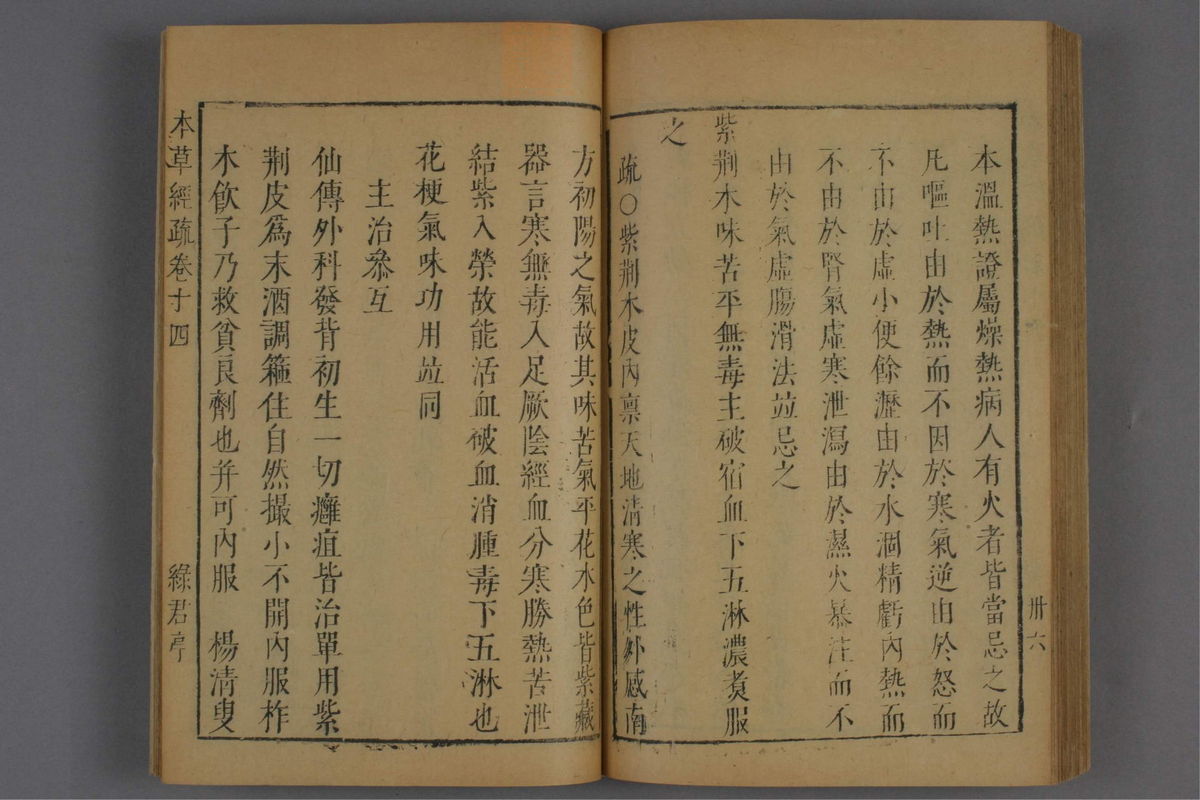 本溫熱證屬燥熱病人有火者皆當忌之故
凡嘔吐由於熱而不因於寒氣逆由於怒而
不由於虛小便餘瀝由於水涸精虧內熱而
不由於腎氣虛寒泄瀉由於濕火暴注而不
由於氣虛腸滑法並忌之
紫荆木味苦平無毒主破宿血下五淋濃煑服
之
疏○紫荆木皮內禀天地清寒之性外感南
卅六
方初陽之氣故其味苦氣平花木色皆紫藏
器言寒無毒入足厥陰經血分寒勝熱苦泄
結紫入榮故能活血破血消腫毒下五淋也
花梗氣味功用並同
主治叅互
仙傳外科發背初生一切癰疽皆治單用紫
荆皮爲末酒調箍住自然撮小不開內服柞
木飲子乃救貧良劑也并可內服 楊清叟
本草經疏卷十四 綠君亭